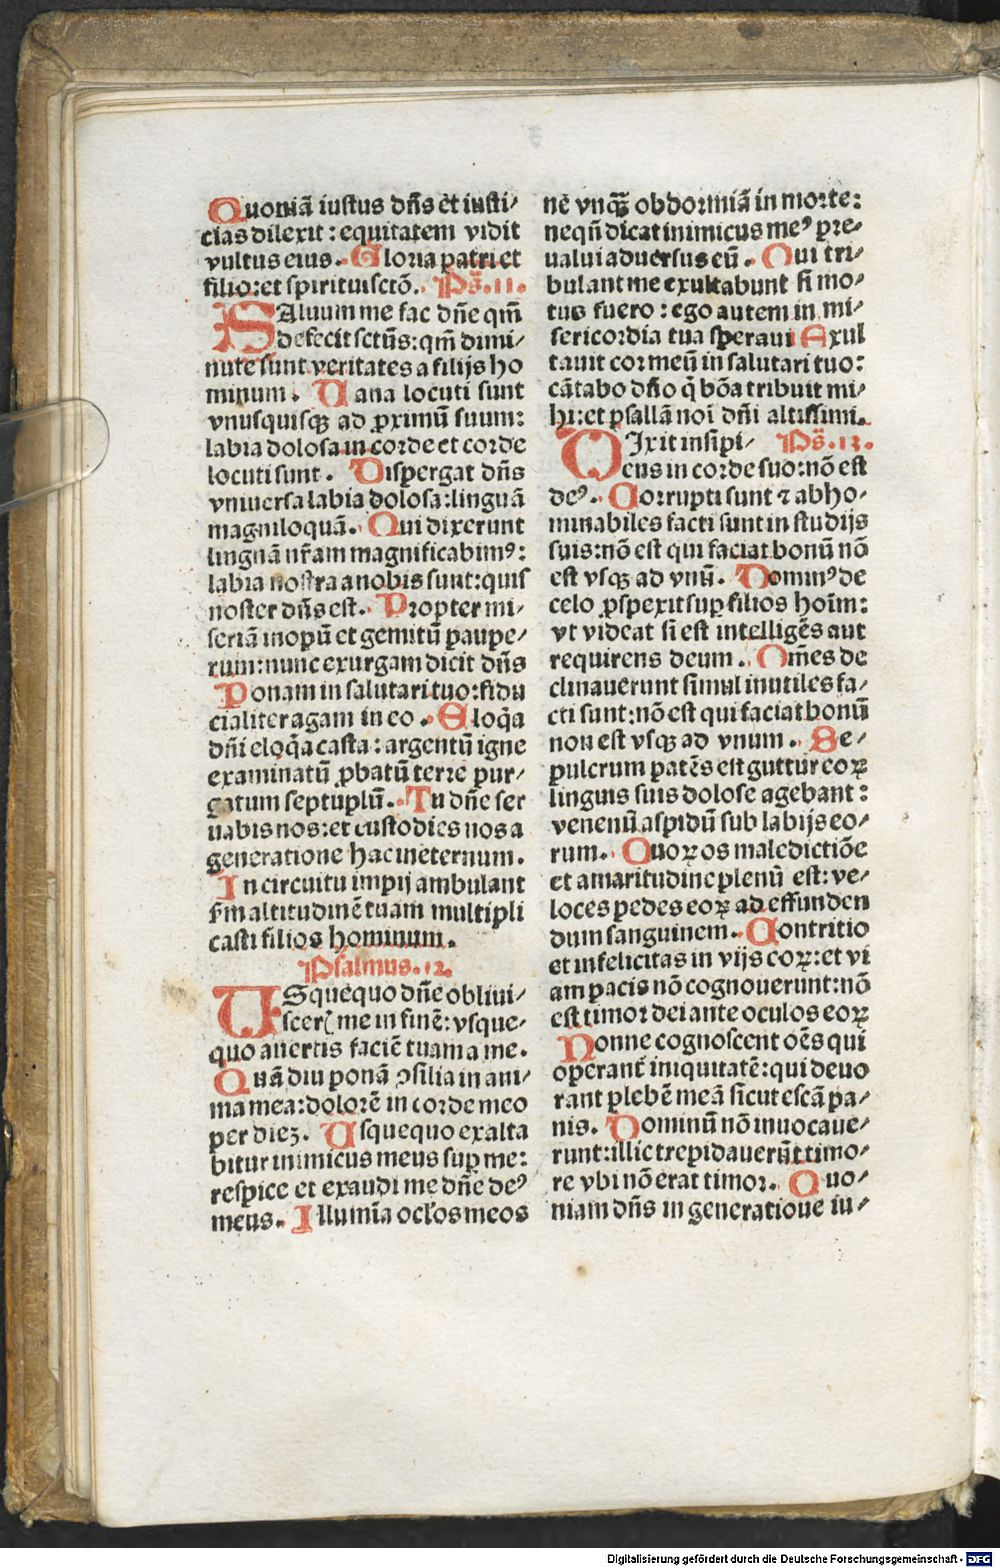 Quoniā iustus dn̄s et iusti⸗
cias dilexit : equitatem vidit
vultus eius. Gloria patri et
filio: et spiritui sctō. Ps̄. 11.
SAluum me fac dn̄e qm̄
defecit sctūs: qm̄ dimi⸗
nute sunt veritates a filijs ho
minum. Vana locuti sunt
vnusquisqꝫ ad ꝓximū suum:
labia dolosa in corde et corde
locuti sunt. Dispergat dn̄s
vniuersa labia dolosa: linguā
magniloquā. Qui dixerunt
linguā nr̄am magnificabimꝰ:
labia nostra a nobis sunt: quis
noster dn̄s est. Propter mi⸗
seriā inopū et gemitū paupe⸗
rum: nunc exurgam dicit dn̄s
Ponam in salutari tuo: fidu
cialiter agam in eo. Eloq̄a
dn̄i eloq̄a casta: argentū igne
examinatū ꝓbatū terre pur⸗
gatum septuplū. Tu dn̄e ser
uabis nos: et custodies nos a
generatione hac ineternum.
In circuitu impij ambulant
ẜm altitudinē tuam multipli
casti filios hominum.
Psalmus. 12.
VSquequo dn̄e obliui⸗
sceriꝭ me in finē: vsque⸗
quo auertis faciē tuam a me.
Quādiu ponā ꝯsilia in ani⸗
ma mea: dolorē in corde meo
per dieꝫ. Vsquequo exalta
bitur inimicus meus suꝑ me:
respice et exaudi me dn̄e deꝰ
meus. Illumīa ocl̓os meos
nē vnqꝫ̄ obdormiā in morte:
neqn̄ dicat inimicus meꝰ pre⸗
ualui aduersus eū. Qui tri⸗
bulant me exultabunt si mo⸗
tus fuero : ego autem in mi⸗
sericordia tua speraui Exul
tauit cor meū in salutari tuo:
cātabo dn̄o q̄ bōa tribuit mi⸗
hi: et psallā noī dn̄i altissimi.
DIxit insipi⸗ Ps̄. 13.
eus in corde suo: nō est
deꝰ. Corrupti sunt ⁊ abho⸗
minabiles facti sunt in studijs
suis: nō est qui faciat bonū nō
est vsqꝫ ad vnū. Dominꝰ de
celo ꝓspexit suꝑ filios hoīm:
vt videat si est intelligēs aut
requirens deum. Om̄es de
clinauerunt simul inutiles fa⸗
cti sunt: nō est qui faciat bonū
non est vsqꝫ ad vnum. Se⸗
pulcrum patēs est guttur eoꝝ
linguis suis dolose agebant :
venenū aspidū sub labijs eo⸗
rum. Quoꝝ os maledictiōe
et amaritudine plenū est: ve⸗
loces pedes eoꝝ ad effunden
dum sanguinem. Contritio
et infelicitas in vijs eoꝝ: et vi
am pacis nō cognouerunt: nō
est timor dei ante oculos eoꝝ
Nonne cognoscent oēs qui
operant̄ iniquitatē: qui deuo
rant plebē meā sicut escā pa⸗
nis. Dominū nō inuocaue⸗
runt: illic trepidauerūt timo⸗
re vbi nō erat timor. Quo⸗
niam dn̄s in generatioue iu⸗
Digitalisierung gefördert durch die Deutsche Forschungsgemeinschaft - DFG